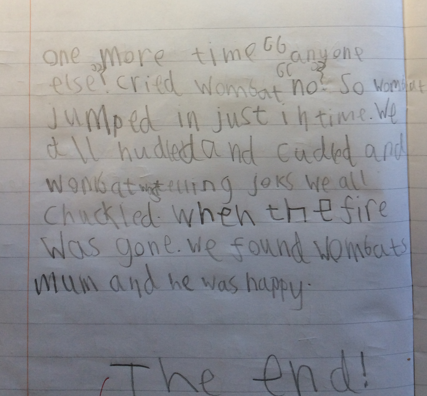 one more time "anyone
else?" cried wombat "no". So wombat
jumped in just in time. We
all hudled and cudled and
wombat telling joks we all
chuckled. when the fire
was gone. we found wombats
mum and he was happy.
The end!